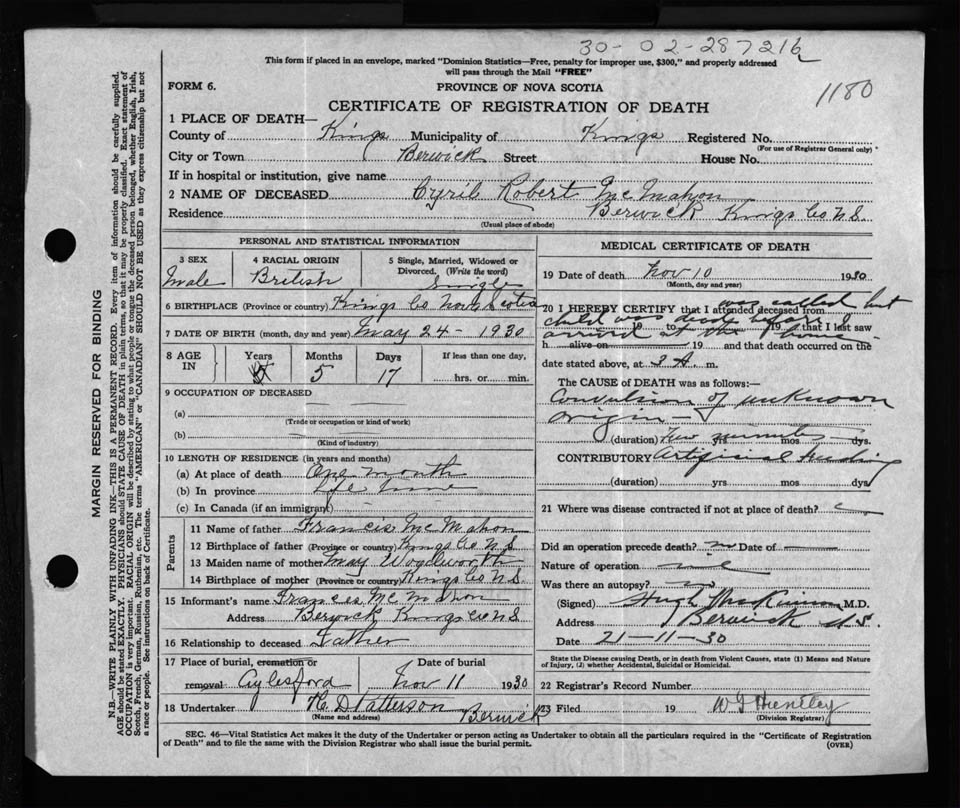 30-02-287216
This form if placed in an envelope, marked "Dominion Statistics—Free, penalty for improper use, $300," and properly addressed
will pass through the Mail "FREE"
1180
FORM 6.
PROVINCE OF NOVA SCOTIA
CERTIFICATE OF REGISTRATION OF DEATH
1 PLACE OF DEATH—
County of Kings Municipality of Kings Registered No.
(For use of Registrar General only)
City or Town Berwick Street House No.
If in hospital or institution, give name
2 NAME OF DECEASED Cyril Robert McMahon
Residence Berwick Kings Co N.S.
(Usual place of abode)
PERSONAL AND STATISTICAL INFORMATION
3 SEX 4 RACIAL ORIGIN 5 Single, Married, Widowed or
Divorced. (Write the word)
Male British Single
6 BIRTHPLACE (Province or country) Kings Co Nova Scotia
7 DATE OF BIRTH (month, day and year) May 24 - 1930
8 AGE IN Years Months Days If less than one day,
5 17 hrs. or min.
9 OCCUPATION OF DECEASED
(a)
(Trade or occupation or kind of work)
(b)
(Kind of industry)
10 LENGTH OF RESIDENCE (in years and months)
(a) At place of death One month
(b) In province Life time
(c) In Canada (if an immigrant)
Parents
11 Name of father Francis McMahon
12 Birthplace of father (Province or country) Kings Co N S
13 Maiden name of mother May Woodworth
14 Birthplace of mother (Province or country) Kings Co N.S.
15 Informant's name Francis McMahon
Address Berwick Kings Co N S
16 Relationship to deceased Father
17 Place of burial, cremation or Date of burial
removal Aylesford Nov 11 1930
18 Undertaker H. D Patterson Berwick
(Name and address)
MEDICAL CERTIFICATE OF DEATH
19 Date of death Nov 10 1930
(Month, day and year)
was called but
20 I HEREBY CERTIFY that I attended deceased from
child was dead before I
19 to 19 that I last saw
arrived at the home
h alive on 19 and that death occurred on the
date stated above, at 3 A. m.
The CAUSE of DEATH was as follows:—
Convulsion of unknown
origin
(duration) Few minutes yrs mos dys.
CONTRIBUTORY Artificial feeding
(duration) yrs mos dys
21 Where was disease contracted if not at place of death?
Did an operation precede death? no Date of
Nature of operation
Was there an autopsy? no
(Signed) Hugh MacKinnon M.D.
Address Berwick N.S.
Date 21-11-30
State the Disease causing Death, or in death from Violent Causes, state (1) Means and Nature
of Injury, (2) whether Accidental, Suicidal or Homicidal.
22 Registrar's Record Number
23 Filed 19 W J Huntley
(Division Registrar)
SEC. 46—Vital Statistics Act makes it the duty of the Undertaker or person acting as Undertaker to obtain all the particulars required in the "Certificate of Registration
of Death" and to file the same with the Division Registrar who shall issue the burial permit.
(OVER)
MARGIN RESERVED FOR BINDING
N.B.—WRITE PLAINLY WITH UNFADING INK—THIS IS A PERMANENT RECORD. Every item of information should be carefully supplied.
AGE should be stated EXACTLY. PHYSICIANS should STATE CAUSE OF DEATH in plain terms, so that it may be properly classified. Exact statement of
OCCUPATION is very important. RACIAL ORIGIN will be described by stating to what people or tongue the deceased person belonged, whether English, Irish,
Scotch, French, German, Russian, Ruthenian, etc. The terms "AMERICAN" or "CANADIAN" SHOULD NOT BE USED as they express citizenship but not
a race or people. See instructions on back of Certificate.